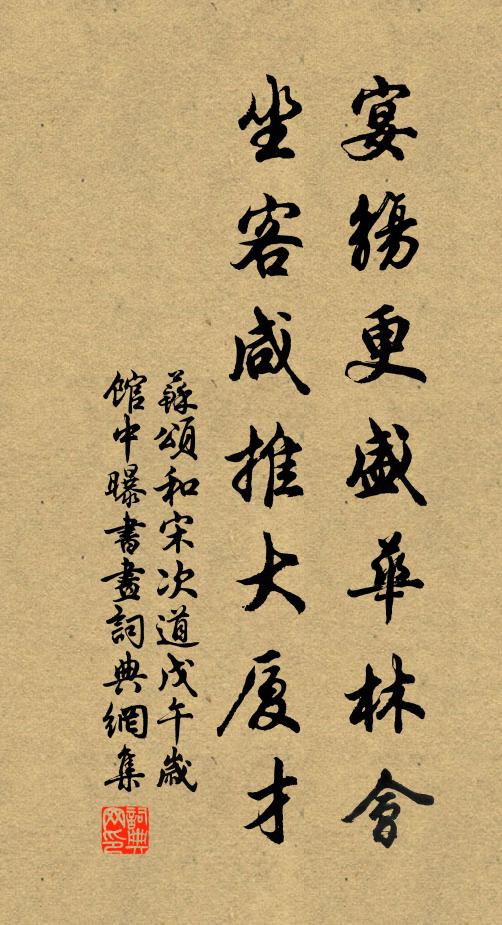 宴觴更盛華林會
坐客咸推大厦才
蘇頌和宋次道戊午歲
館中曝書畫詞典網集
詞典网印